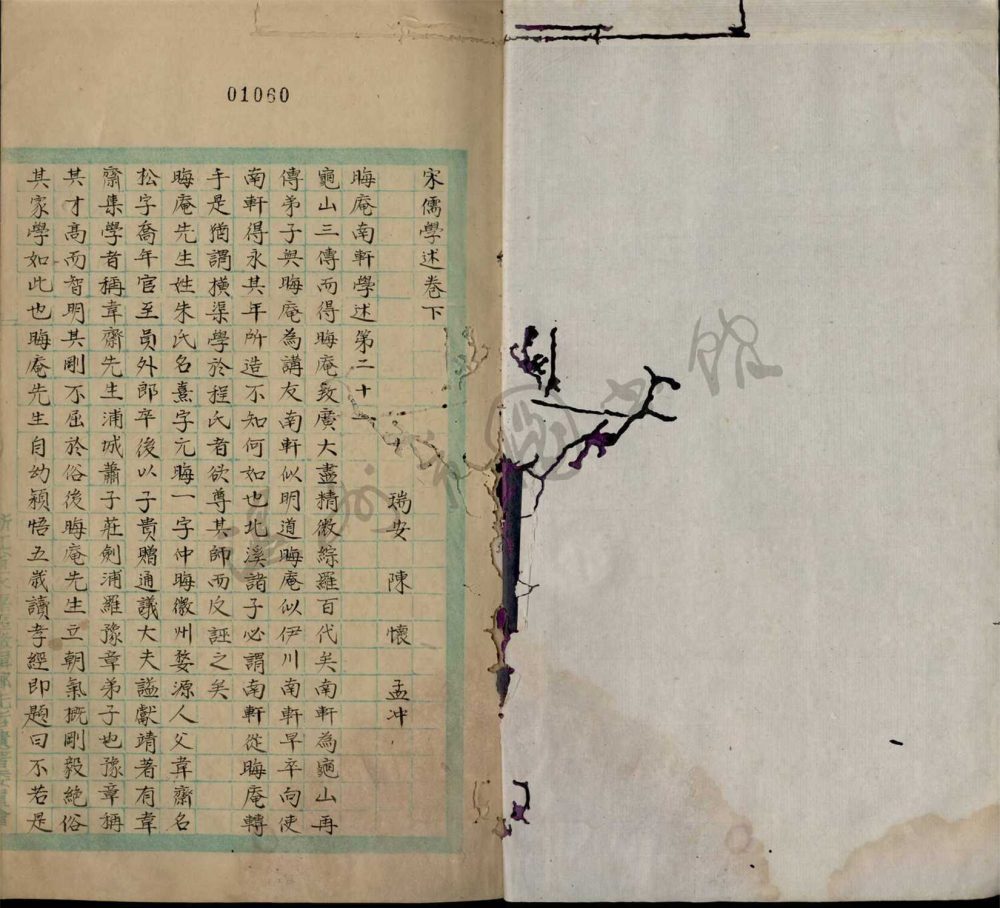 01060
宋儒學述卷下
瑞安 陳 懷 孟冲
晦庵南軒學述第二十一
龜山三傳而得晦庵致廣大盡精微綜羅百代矣南軒為龜山再
傳弟子與晦庵為講友南軒似明道晦庵似伊川南軒早卒向使
南軒得永其年所造不知何如也北溪諸子必謂南軒從晦庵轉
手是猶謂橫渠學於程氏者欲尊其師而反誣之矣
晦庵先生姓朱氏名熹字元晦一字仲晦徽州婺源人父韋齋名
松字喬年官至員外郎卒後以子贵贈通議大夫謚獻靖著有韋
齋集學者稱韋齋先生浦城蕭子莊劍浦羅豫章弟子也豫章稱
其才高而智明其剛不屈於俗後晦庵先生立朝氣概剛毅絕俗
其家學如此也晦庵先生自幼穎悟五歲讀孝經即題曰不若是